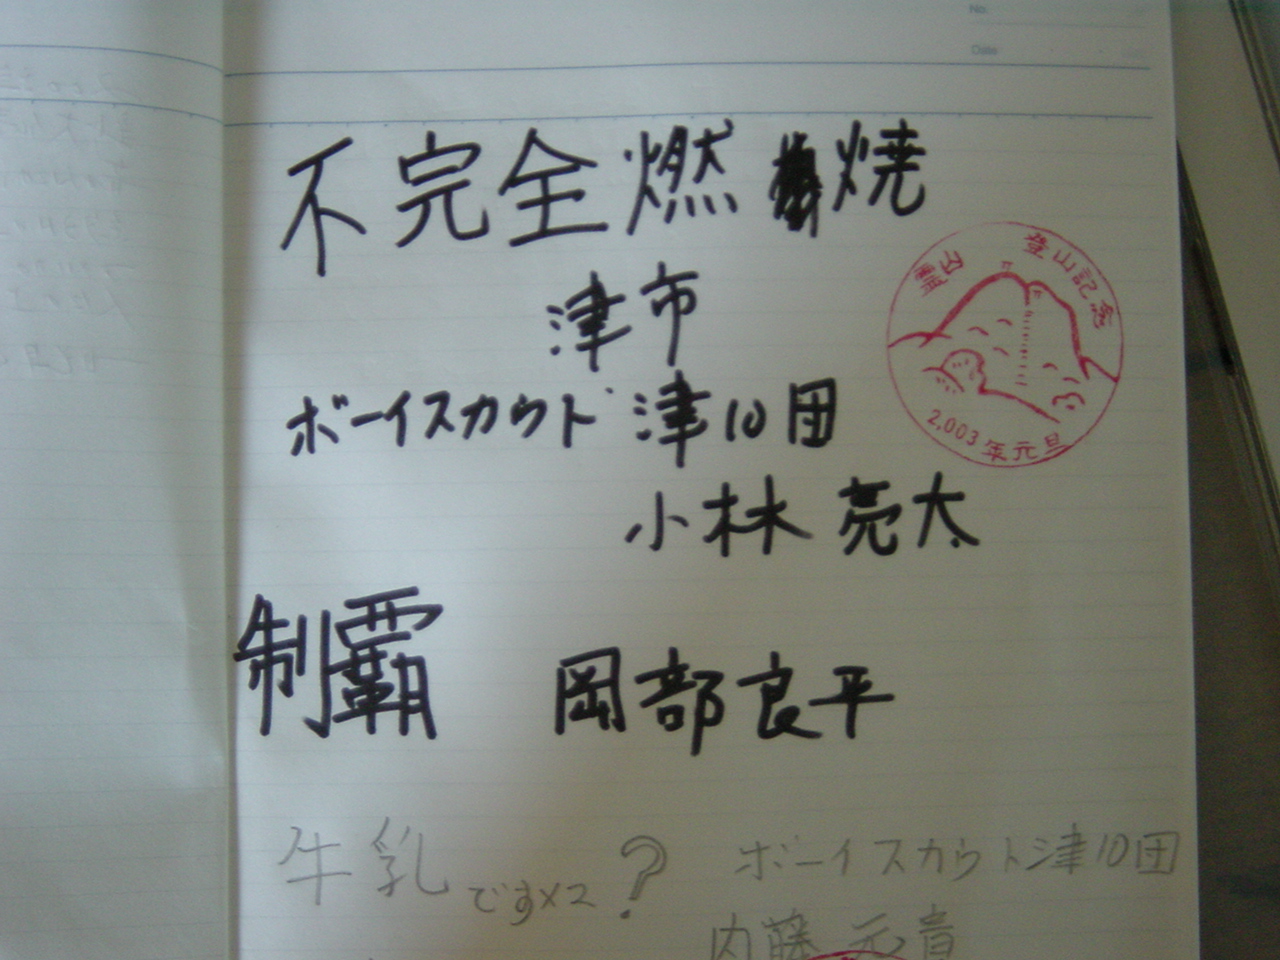 No.
Date
不完全燃焼
津市
ボーイスカウト 津10団
小林 亮太
霊山 登山記念
2,003年元旦
制覇 岡部良平
牛乳ですメス? ボーイスカウト津10団
内藤 元貴